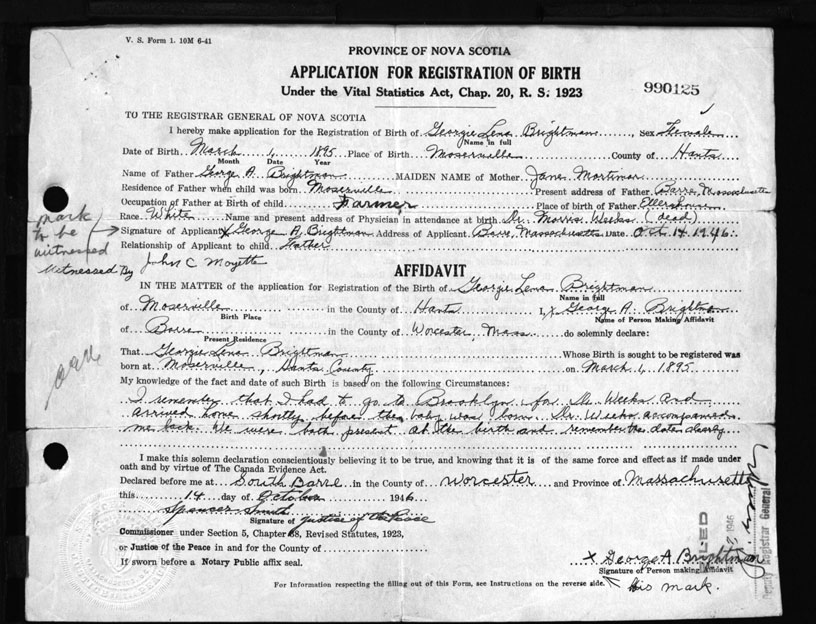 V. S. Form 1. 10M 6-41
PROVINCE OF NOVA SCOTIA
APPLICATION FOR REGISTRATION OF BIRTH
Under the Vital Statistics Act, Chap. 20, R. S. 1923
990125
TO THE REGISTRAR GENERAL OF NOVA SCOTIA
I hereby make application for the Registration of Birth of Georgie Lena Brightman, sex Female
Name in full
Date of Birth March 1, 1895 Place of Birth Moserville County of Hants
Month Date Year
Name of Father George A. Brightman MAIDEN NAME of Mother Jane Mortimer
Residence of Father when child was born Moserville Present address of Father Barre, Massachusetts
Occupation of Father at Birth of child Farmer Place of birth of Father Ellershouse
Race White Name and present address of Physician in attendance at birth Dr. Morris Weeks (dead)
mark to be witnessed
Signature of Applicant X George A. Brightman Address of Applicant Barre, Massachusetts Date Oct. 14 1946.
Relationship of Applicant to child Father
Witnessed By John C Moyette
AFFIDAVIT
IN THE MATTER of the application for Registration of the Birth of Georgie Lena Brightman
Name in full
of Moserville in the County of Hants I, X George A. Brightman
Birth Place Name of Person Making Affidavit
of Barre in the County of Worcester, Mass do solemnly declare:
Present Residence
That Georgie Lena Brightman Whose Birth is sought to be registered was
born at Moserville, Hants County on March 1, 1895
My knowledge of the fact and date of such Birth is based on the following Circumstances:
I remember that I had to go to Brooklyn for Dr. Weeks and
arrived home shortly before the baby was born. Dr. Weeks accompanied
me back. We were both present at the birth and remember the date clearly
I make this solemn declaration conscientiously believing it to be true, and knowing that it is of the same force and effect as if made under
oath and by virtue of The Canada Evidence Act.
Declared before me at South Barre in the County of Worcester and Province of Massachusetts
this 14 day of October 1946
Spencer Smith
Signature of Justice of the Peace
Commissioner under Section 5, Chapter 38, Revised Statutes, 1923,
or Justice of the Peace in and for the County of
If sworn before a Notary Public affix seal.
X George A Brightman
Signature of Person making Affidavit
his mark.
For Information respecting the filling out of this Form, see Instructions on the reverse side.
FILED
1946
Deputy Registrar General